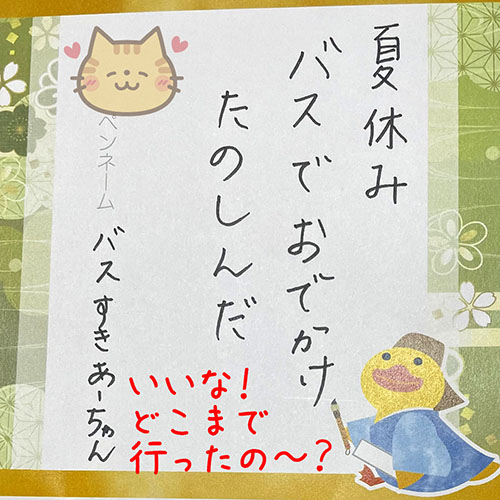 夏休み
バスでおでかけ
たのしんだ
ペンネーム
バスすきあーちゃん
いいな!
どこまで
行ったの〜?